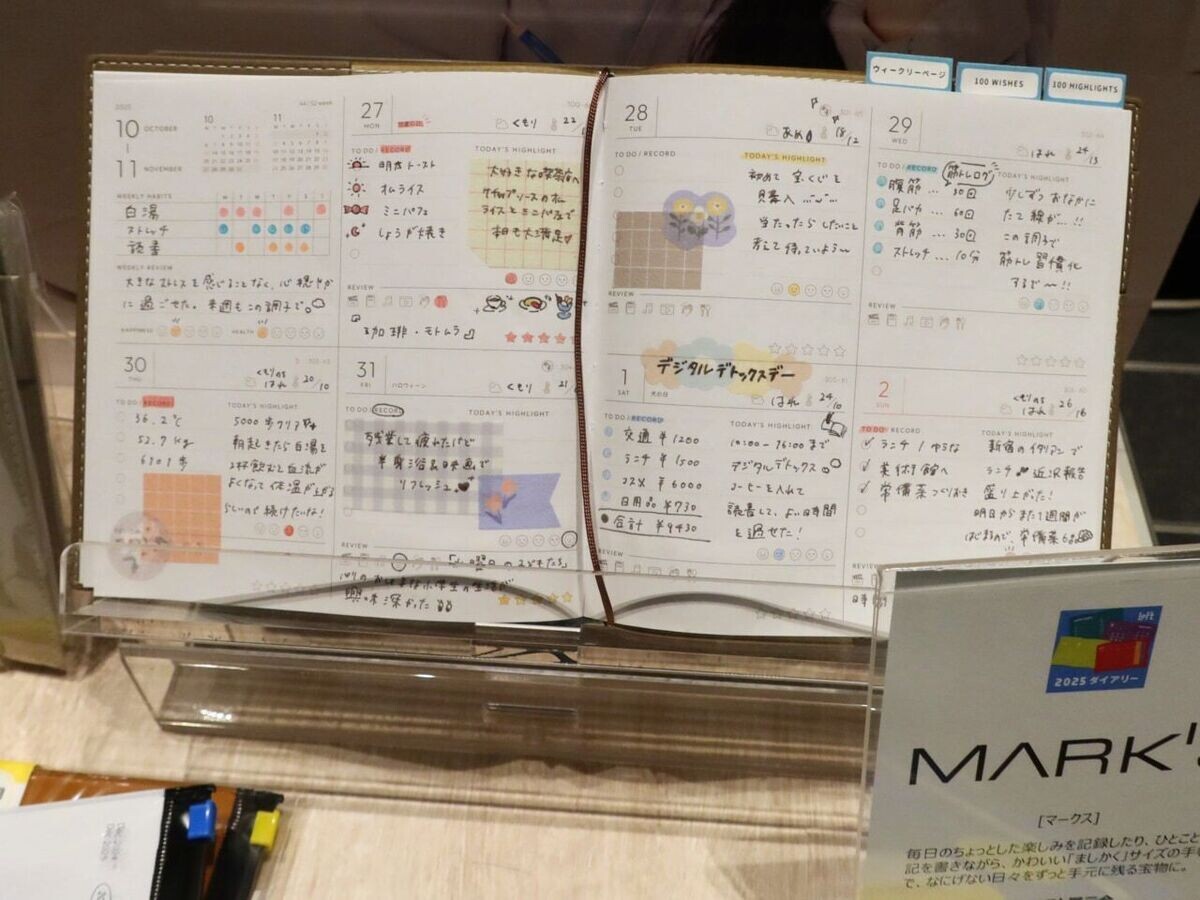 ウィークリーページ
100 WISHES
100 HIGHLIGHTS
2025
10 OCTOBER
11 NOVEMBER
10
11
WEEKLY HABITS
白湯
ストレッチ
読書
WEEKLY REVIEW
大きなストレスを感じることなく、心穏やか
に過ごせた。来週もこの調子で。
HAPPINESS
HEALTH
27
MON
くもり 22
TO DO / RECORD
明太トースト
オムライス
ミニパフェ
しょうが焼き
大好きな喫茶店へ
ケチャップソースのオム
ライスとミニパフェで
相も大満足
REVIEW
珈琲・モトムラ
28
TUE
あめ 18/12
TO DO / RECORD
TODAY'S HIGHLIGHT
初めて宝くじを
購入
当たったらしたいこと
考えて待っていよう〜
REVIEW
29
WED
はれ 24/13
TO DO / RECORD
筋トレログ
TODAY'S HIGHLIGHT
腹筋 … 30回
足パカ … 60回
背筋 … 30回
ストレッチ … 10分
少しずつおなかに
たて線が…!!
この調子で
筋トレ習慣化
するぞ〜!!
REVIEW
30
THU
くもりのち
はれ 20/10
TO DO / RECORD
TODAY'S HIGHLIGHT
36.2℃
52.7kg
6101歩
5000歩クリア
朝起きたら白湯を
2杯飲むと血流が
よくなって体温が上がる
らしいので続けたいな!
31
FRI
ハロウィーン
くもり 21
TO DO / RECORD
TODAY'S HIGHLIGHT
残業して疲れたけど
半身浴&映画で
リフレッシュ。
REVIEW
興味深かった
1
SAT
犬の日
デジタルデトックスデー
はれ 24/10
TO DO / RECORD
TODAY'S HIGHLIGHT
交通 ¥1200
ランチ ¥1500
コスメ ¥6000
日用品 ¥730
合計 ¥9430
10:00-16:00まで
デジタルデトックス
コーヒーを入れて
読書して、よい時間
を過せた!
REVIEW
2
SUN
くもりのち
はれ 26/16
TO DO / RECORD
TODAY'S HIGHLIGHT
ランチ
美術館へ
常備菜づくりおき
新宿のイタリアンで
ランチ 近況報告
盛り上がった!
明日からまた1週間が
はじまるので、常備菜
REVIEW
loft
2025 ダイアリー
MARK'S
[マークス]
毎日のちょっとした楽しみを記録したり、ひとこと
記を書きながら、かわいい「ましかく」サイズの手
で、なにげない日々をずっと手元に残る宝物に。